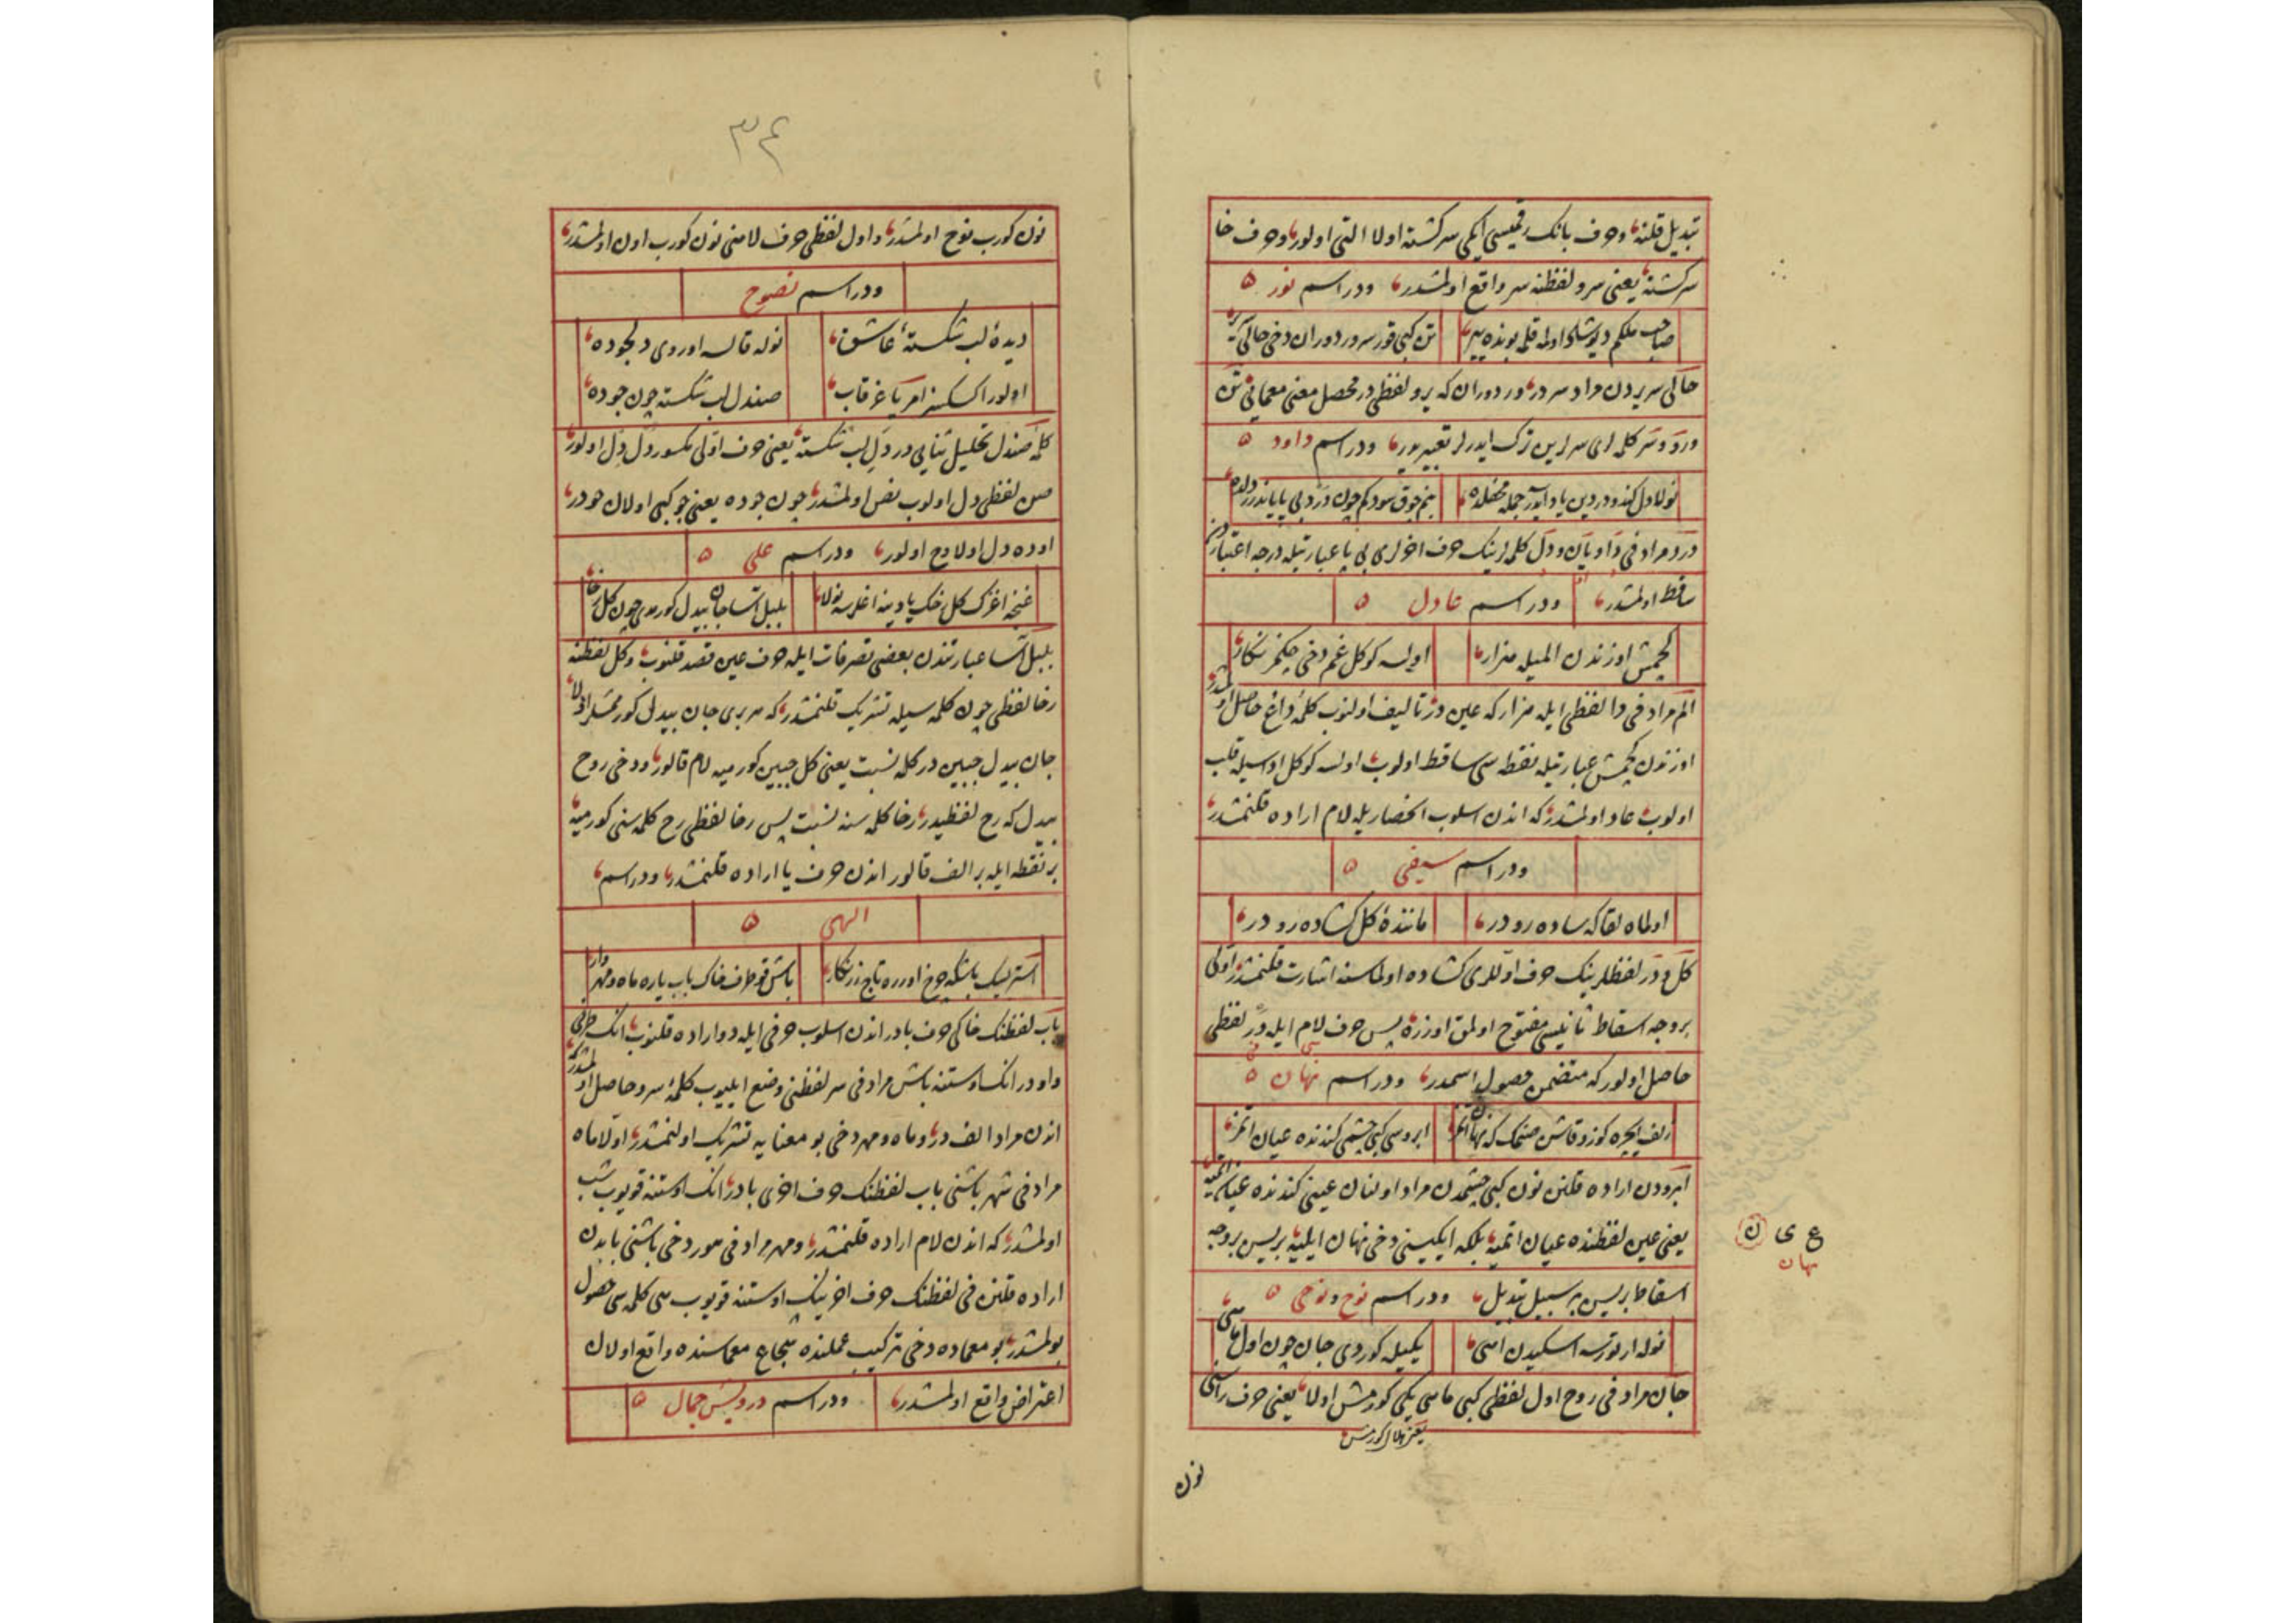 تبدیل قلنه وحرف بانك رقمیسی ایكی سركشته اولا التی اولور وحرف خا
سركشته یعنی سرو لفظنه سر واقع اولمشدر ودر اسم نور
صاحب ملكم دیو شاد اولمه قلمه بونده ییر تن كبی قور سرور دوران دخی حالی سریر
حالی سریردن مراد سردر ور دوران كه یرو لفظی در محصل معنی معمائی تن
ورد وسر كلمه لری سرلرین ترك ایدرلر تعبیریدر ودر اسم داود
نولا دل كندو دردین یاد ایدرسه جمله محفلده بنم چوق سودكم چون درد بی پایاندر دلده
درد مرادفی دا و یان ودل كلمه لرینك حرف اخرلری بی پا عبارتیله درجه اعتباردن
ساقط اولمشدر ودر اسم عادل
كچمش اوزندن المیله مزار اولسه كوكل غم دخی چكمز نكار
الم مرادفی دا لفظی ایله مزار كه عین در تالیف اولنوب كلمۀ داغ حاصل اولمشدر
اوزندن كچمش عبارتیله نقطه سی ساقط اولوب اولسه كوكل اوسیله قلب
اولوب عاد اولمشدر كه اندن اسلوب انحصاریله لام اراده قلنمشدر
ودر اسم سیفی
اولماه لقا كه ساده رو در مانندۀ كل كشاده رو در
كل ودر لفظلرینك حرف اوللری كشاده اولماسنه اشارت قلنمشدر اولكی
بر وجه اسقاط ثانیسی مفتوح اولمق اوزره پس حرف لام ایله در لفظی
حاصل اولور كه متضمن حصول اسمدر ودر اسم نهان
زلف ایچره كوز وقاشن صنمك كه نهان اتمز ابروسی كبی چشمی كندنده عیان اتمز
ابرودن اراده قلنن نون كبی چشمدن مراد اولنان عینی كندنده عیان اتمیه
یعنی عین لفظنده عیان اتمیه بلكه ایكیسنی دخی نهان ایلیه بریسی بر وجه
ع ی ن
نهان
اسقاط بریسی بر سبیل تبدیل ودر اسم نوح ونوحی
نوله ارتورسه اسكیدن انسی یكیله كوردی جان چون اول ماسی
جان مرادفی روح اول لفظی كبی ماسی یكی كورمش اولا یعنی حرف راسنی
یعنی هلال كورمش
نون
٣٤
نون كورب نوح اولمشدر واول لفظی حرف لامنی نون كورب اون اولمشدر
ودر اسم نصوح
دیدۀ لب شكستۀ عاشق نوله قالسه اوروی دلجوده
اولور اكسكسز امریا غرقاب صندل لب شكسته چون جوده
كلمۀ صندل تحلیل ثنایی در دل لب شكسته یعنی حرف اولی مكسور دل دل اولور
صن لفظی دل اولوب نص اولمشدر چون جوده یعنی جو كبی اولان حو در
اوده دل اولا وح اولور ودر اسم علی
غنچه اغزك كل خاك پایینه اغلرسه نولا بلبل اسا جان بیدل كورمدی چون كل رخا
بلبل اسا عبارتندن بعضی تصرفات ایله حرف عین قصد قلنوب وكل لفظنه
رخا لفظی چون كلمه سیله تشریك قلنمشدر كه هر بری جان بیدل كورممش اولا
جان بیدل جبین در كله نسبت یعنی كل جبین كورمیه لام قالور ودخی روح
بیدل كه رح لفظیدر رخا كلمه سنه نسبت پس رخا لفظی رح كلمه سنی كورمیه
بر نقطه ایله بر الف قالور اندن حرف یا اراده قلنمشدر ودر اسم
الهی
استرایسك باشكه چرخ اورره تاج زرنكار باش قو طرف خاك بابه یاره ماه ومهر وار
باب لفظنك خاكی حرف بادر اندن اسلوب حرفی ایله دو اراده قلنوب انك طرفی
واودر انك اوستنه باش مرادفی سر لفظنی وضع ایلیوب كلمۀ سرو حاصل اولمشدر كه
اندن مراد الف در وماه ومهر دخی بو معنایه تشریك اولنمشدر اولا ماه
مرادفی شهر باشنی باب لفظنك حرف اخری بادر انك اوستنه قویوب شب
اولمشدر كه اندن لام اراده قلنمشدر ومهر مرادفی هور دخی باشنی بابدن
اراده قلنن فی لفظنك حرف اخرینك اوستنه قویوب هی كلمه سی حصول
بولمشدر بو معماده دخی تركیب عملنده شجاع معماسنده واقع اولان
اعتراض واقع اولمشدر ودر اسم درویش جمال